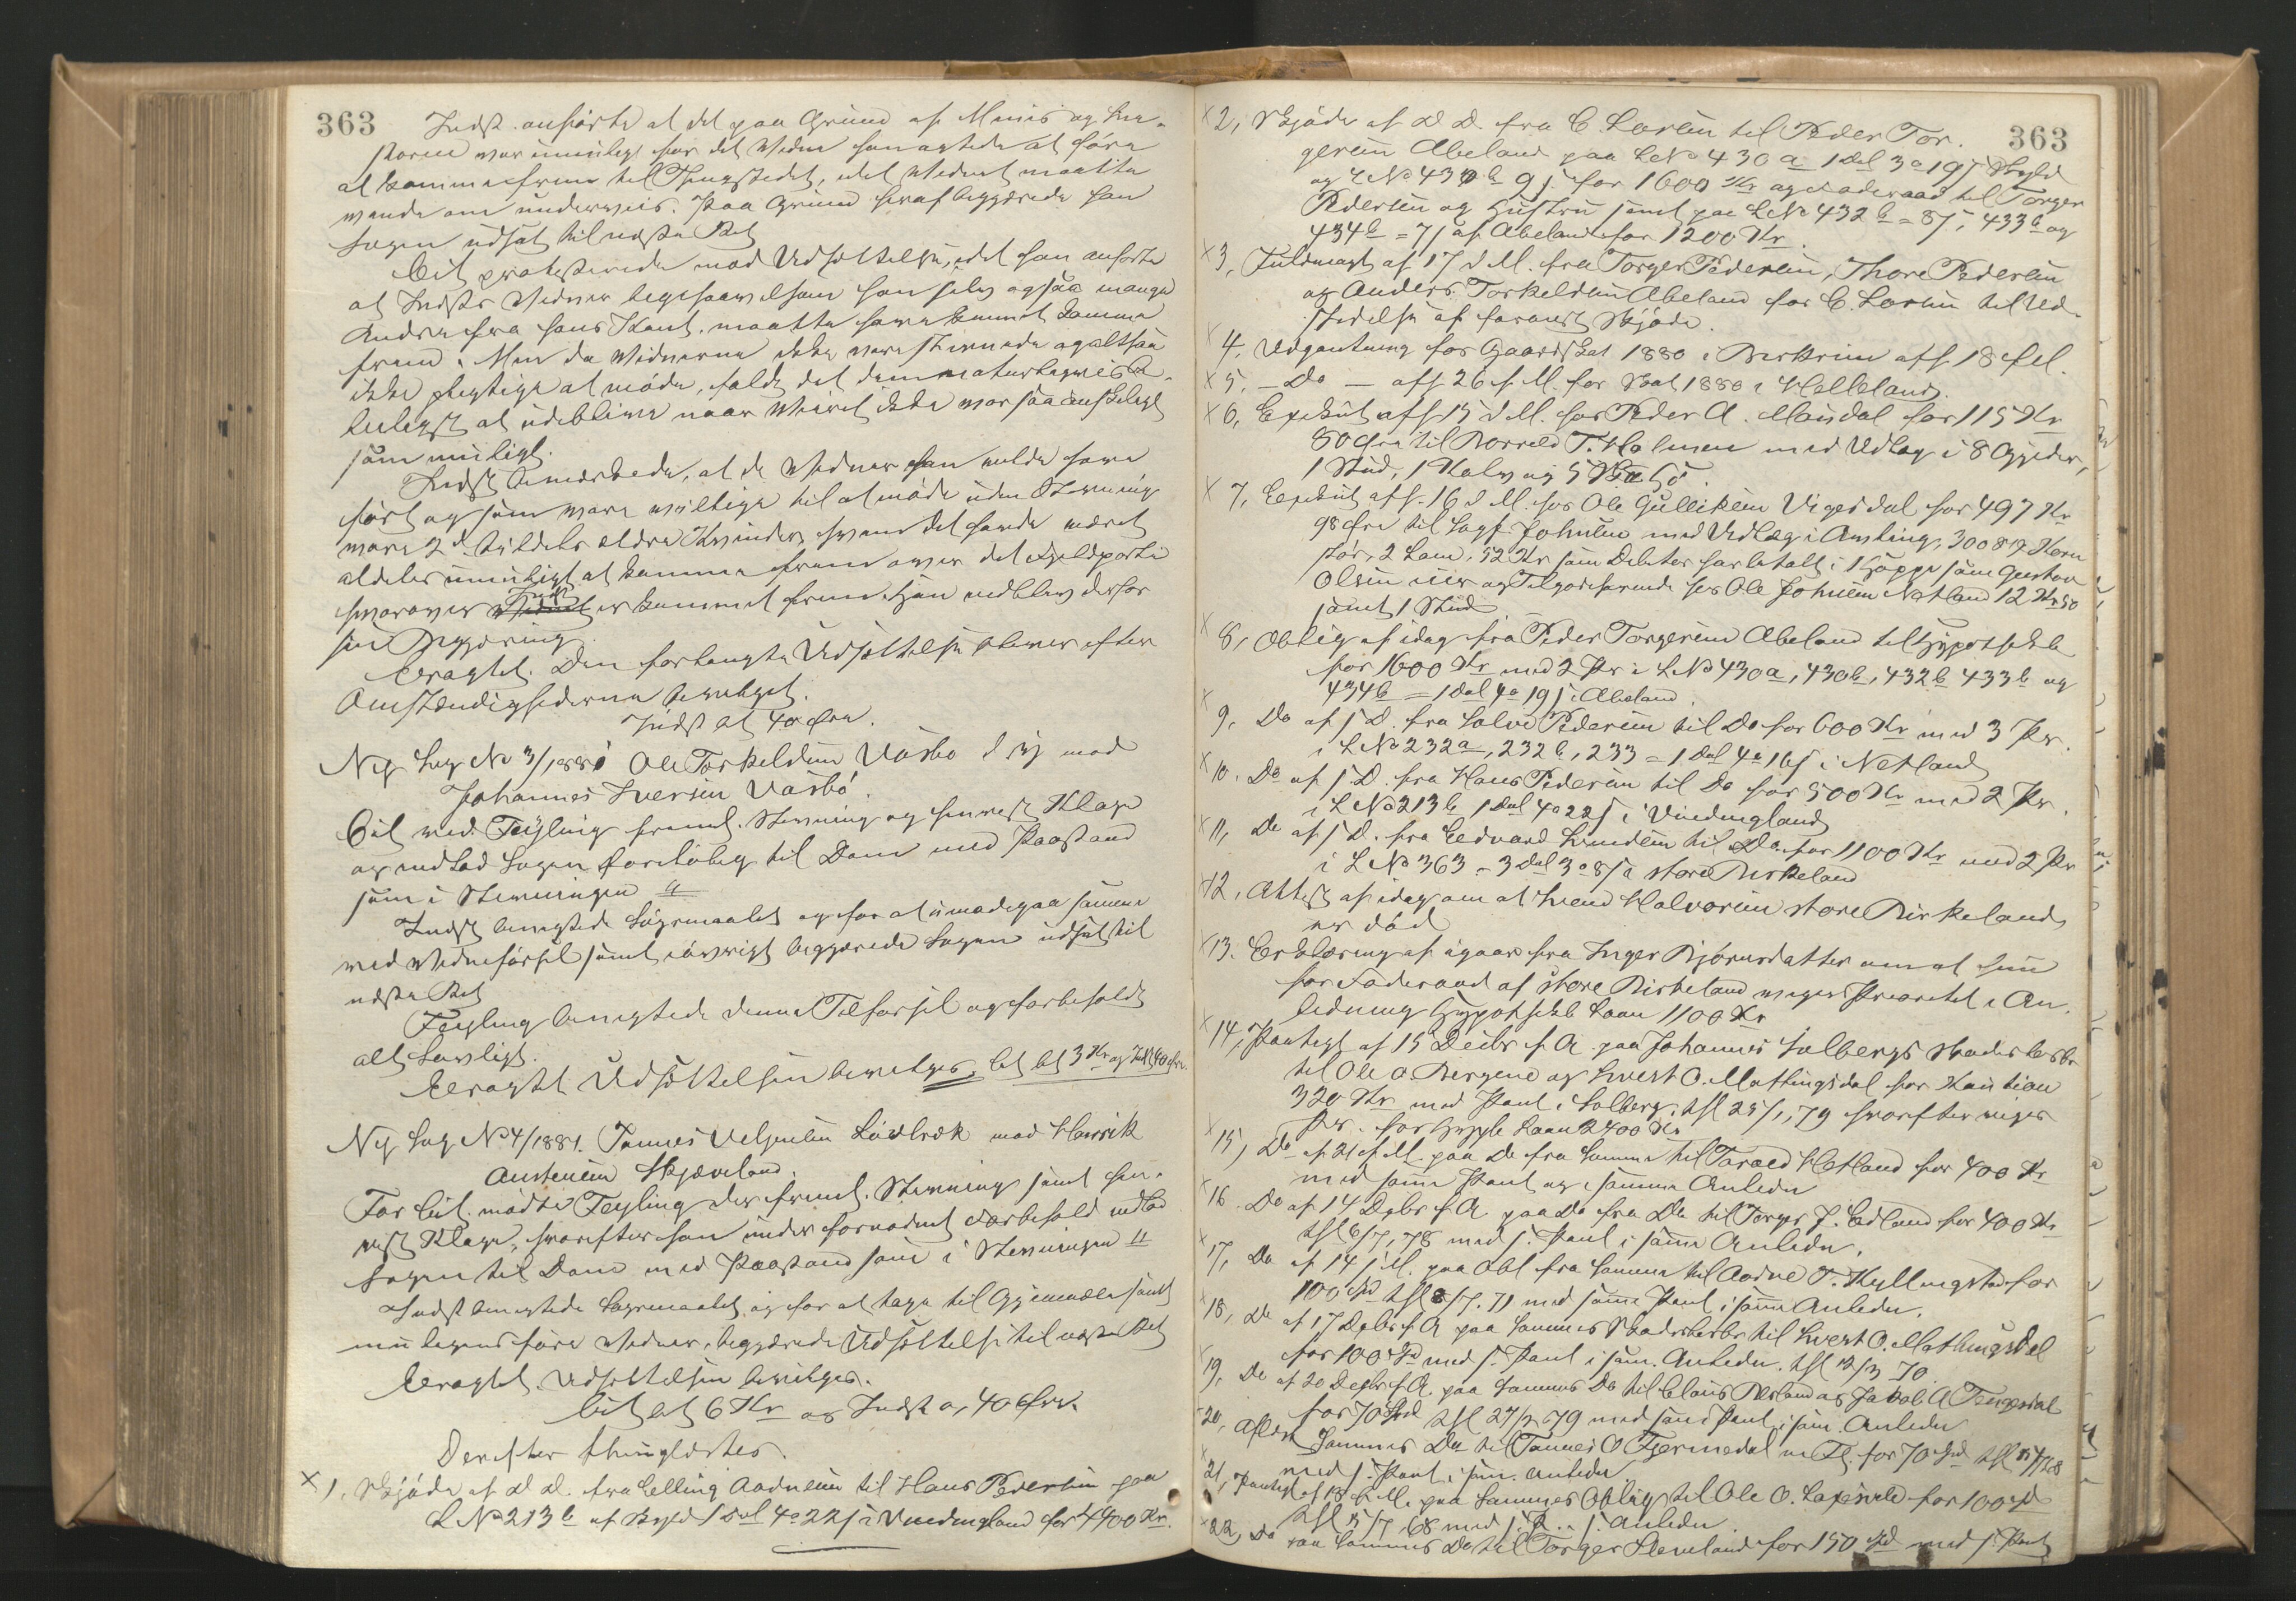 363
Indst. anførte at det paa Grund af Menis og Sne-
stormen var umuligt for det Vidne han agtede at føre
at komme frem til Thingstedet, idet Vidnet maatte
vende om underveis. Paa Grund heraf begjærede han
Sagen udsat til næste Ret
Cit. protesterede mod Udsættelsen, idet han anførte
at Indsts Vidner ligesaavelsom han selv og saa mange
Andre fra hans Kant maatte have kunnet komme
frem. Men da Vidnerne ikke vare stevnede og altsaa
ikke pligtige at møde, faldt det dem naturligvis be-
leiligst at udeblive naar Veiret ikke var saa ønskeligt
som muligt.
Indst bemærkede, at de Vidner han vilde have
ført og som vare villige til at møde uden Stevning
vare 2de tildels ældre Kvinder, hvem det havde været
aldeles umuligt at komme frem over det Fjeldparti
hvorover Indst er kommet frem. Han vedblev derfor
sin Begjæring
Eragtet. Den forlangte Udsættelse bliver efter
Omstændighederne bevilget.
Indst bt 40 Øre.
Ny Sag No 3/1881 Ole Torkeldsen Vasbø d y mod
Johannes Iversen Vasbø.
Cit ved Feyling freml. Stevning og henvist Klage
og indlod Sagen foreløbig til Dom med Paastand
som i Stevningen "
Indst benegtede Søgsmaalet og for at imødegaa samme
med Vidneførsel samt iøvrigt begjærede Sagen udsat til
næste Ret
Feyling benegtede denne Tilførsel og forbeholdt
alt lovligt.
Eragtet Udsættelsen bevilges. Cit bt 3 Kr og Indst 40 Øre.
Ny Sag No 4/1881. Tønnes Veljulsen Løvbræk mod Henrik
Austensen Skjæveland.
For Cit. mødte Feyling der freml. Stevning samt hen-
vist Klage, hvorefter han under fornødent Forbehold indlod
Sagen til Dom med Paastand som i Stevningen "
Indst benegtede Søgsmaalet og for at tage til Gjenmæle samt
muligens føre Vidner, begjærede Udsættelse til næste Ret
Eragtet. Udsættelsen bevilges.
Cit bt 6 Kr og Indst 40 Øre.
Derefter thinglæstes.
x 1, Skjøde af d. D. fra Elling Aadnesen til Hans Pedersen paa
L No 213 b af Skyld 1 Dal 4 o 22 s i Vindingland for 4400 Kr.
363
x 2, Skjøde af d. D. fra C. Lorein til Peder Tor-
gersen Abeland paa L No 430 a 1 Dal 3 o 19 s Skyld
og L No 430 b 9 s for 1600 Kr og Føderaad til Torger
Pedersen og Hustru samt paa L No 432 b = 8 s, 433 b og
434 b = 7 s af Abeland for 1200 Kr.
x 3, Fuldmagt af 17 d M. fra Torger Pedersen, Thore Pedersen
og Anders Torkeldsen Abeland for C. Lorein til Ud-
stedelse af foranst Skjøde.
x 4, Udpantning for Gaardskat 1880 i Birkrim afh. 18 f.M.
x 5, - Do - afh 26 f. M. for Skat 1880 i Helleland.
x 6, Exekut. afh. 15 d M. hos Peder A. Maudal for 115 Kr
80 Øre til Borreld T. Holmen med Udlæg i 8 Gjeder,
1 Stud, 1 Kalv og 5
x 7, Exekut. afh. 16 d M. hos Ole Gulliksen Vigesdal for 497 Kr
98 Øre til Sagf. Johnsen med Udlæg i Avling, 300 Korn
stør, 2 Lam, 52 Kr som Debitor har betalt i 1 Hoppe som Gustav
Olsen eier og Tilgodehavende hos Ole Johnsen Netland 12 Kr 50
samt 1 Stud
x 8, Oblig af idag fra Peder Torgersen Abeland til Hypothekb
for 1600 Kr med 2 Pr i L No 430 a, 430 b, 432 b 433 b og
434 b = 1 Dal 4 o 19 s i Abeland.
x 9, Do af s D. fra Salve Pedersen til Do for 600 Kr med 3 Pr.
i L No 232 a, 232 b, 233 = 1 Dal 4 o 16 s i Netland
x 10. Do af s D. fra Hans Pedersen til Do for 500 Kr med 2 Pr
i L No 213 b 1 Dal 4 o 22 s i Vindingland
x 11, Do af s D. fra Edvard Svendsen til Do for 1100 Kr med 2 Pr
i L No 363 = 3 Dal 3 o 8 s i store Birkeland
x 12, Attest af idag om at Svend Halvorsen store Birkeland
er død
x 13. Erklæring af igaar fra Inger Bjørnsdatter om at hun
for Føderaad af store Birkeland viger Prioritet i An-
ledning Hypothekb Laan 1100 Kr
x 14, Paategn af 15 Decbr f. A. paa Johannes Solbergs Skadesløsbr
til Ole O. Bergene og Sivert O. Mattingsdal for Kaution
320 Kr med Pant i Solberg, thl 25/1, 79 hvorefter viges
Pr. for Hypb Laan 2400 Kr
x 15, Do af 21 f M. paa Do fra Samme til Tarald Hetland for 400 Kr
med samme Pant og i samme Anledn
x 16. Do af 14 Dcbr f A paa Do fra Do til Torger J. Eidland for 400 Kr
thl 6/7, 78 med s. Pant i samme Anledn.
x 17, Do af 14 s M. paa Obl fra Samme til Aadne T. Kyllingstad for
100 Spd thl 8/7. 71 med samme Pant i samme Anledn.
x 18, Do af 17 Dcbr f A paa Sammes Skadesløsbr til Sivert O. Mattingsdal
for 100 Spd med s. Pant i sam. Anledn. thl 12/3 70.
x 19, Do af 20 Decbr f. A. paa Sammes Do til Claus Birkeland og Jakob A Tengesdal
for 70 Spd thl 27/3 79 med samme Pant i sam. Anledn
x 20, Sammes Do til Tønnes O Fjermedal m Fl. for 70 Spd thl
med s. Pant i sam. Anledn
x 21, Paategn af 18 f. M. paa Sammes Oblig til Ole O. for 100 Spd
thl 15/7 68 med s. P.. s. Anledn.
x 22, Do paa Sammes Do til Torger Steneland for 150 Spd med s. Pant